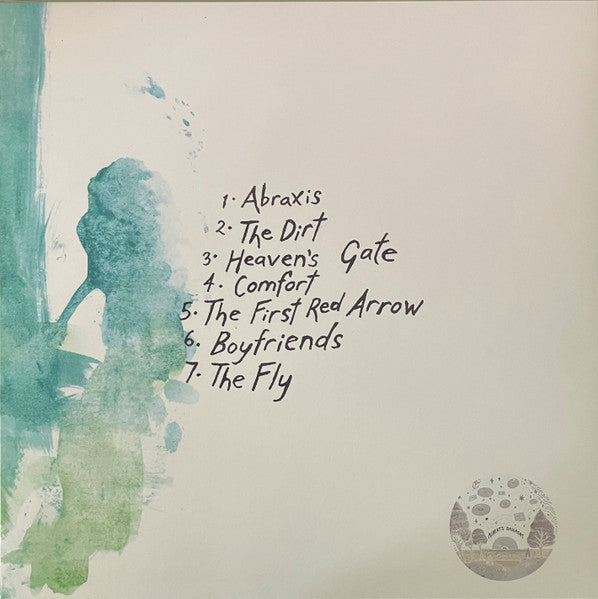 1. Abraxis
2. The Dirt
3. Heaven's Gate
4. Comfort
5. The First Red Arrow
6. Boyfriends
7. The Fly